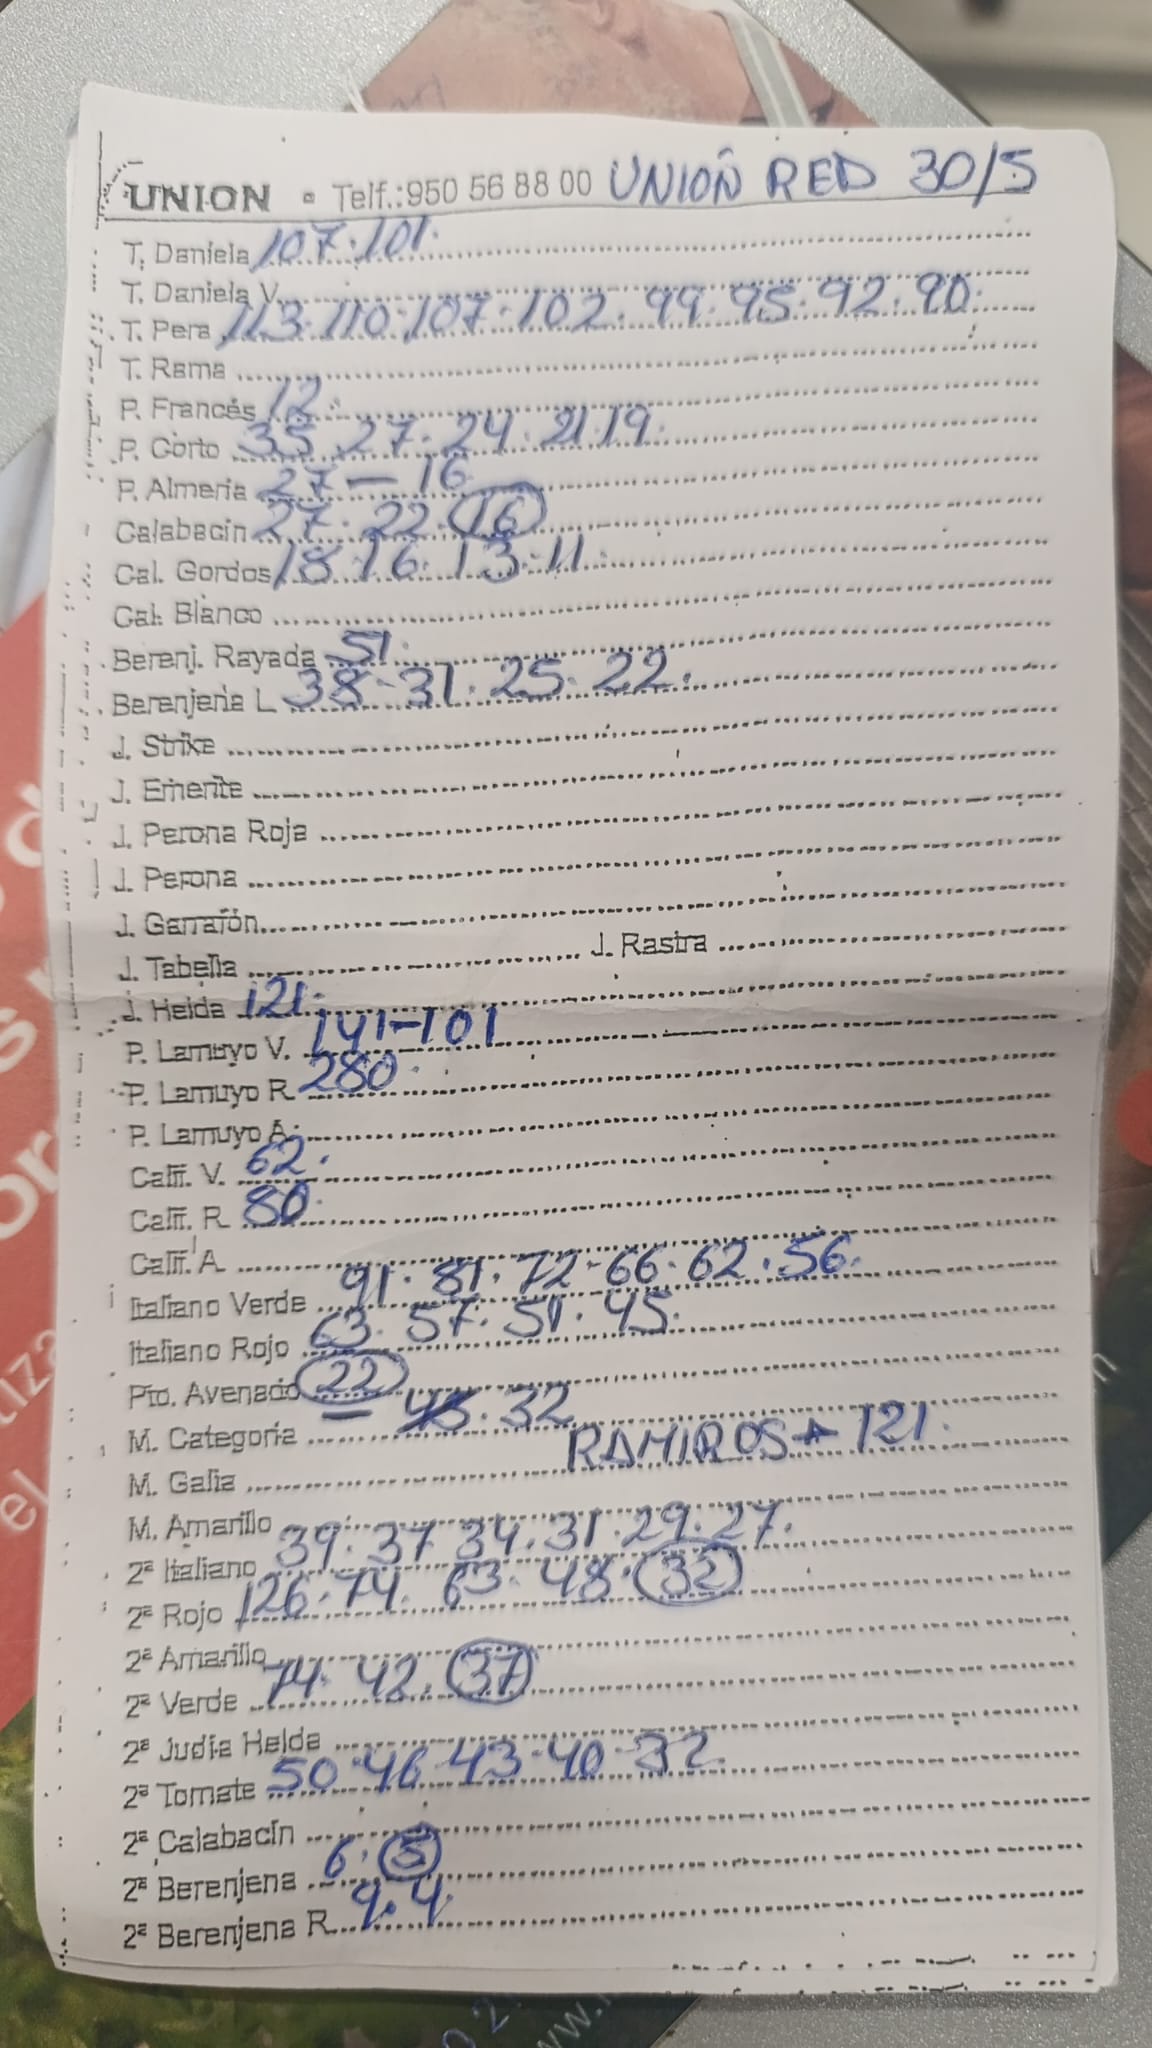 UNION • Telf.: 950 56 88 00 UNION RED 30/5
T. Daniela 107.101.
T. Daniela V.
T. Pera 113.110.107.102.99.95.92.90.
T. Rama
P. Francés 12.
P. Corto 35.27.24.21.19.
P. Almeria 27-16
Calabacin 27.22.16
Cal. Gordos 18.16.13.11.
Cal. Blanco
Berenj. Rayada 51.
Berenjena L 38-31.25.22.
J. Strike
J. Emerite
J. Perona Roja
J. Perona
J. Garrafón
J. Tabella J. Rastra
J. Helda 121.
P. Lamuyo V. 141-101
P. Lamuyo R. 280.
P. Lamuyo A.
Calif. V. 62.
Calif. R. 80.
Calif. A.
Italiano Verde 91.81.72-66.62.56.
Italiano Rojo 63.57.51.45.
Pto. Avenado 22
M. Categoria 32
M. Galia RAMIROS 121.
M. Amarillo
2ª Italiano 39.37 34.31.29.27.
2ª Rojo 126.74.63.48.32
2ª Amarillo
2ª Verde 74.42.37
2ª Judía Helda
2ª Tomate 50.46.43.40.32.
2ª Calabacín
2ª Berenjena 6.5
2ª Berenjena R.